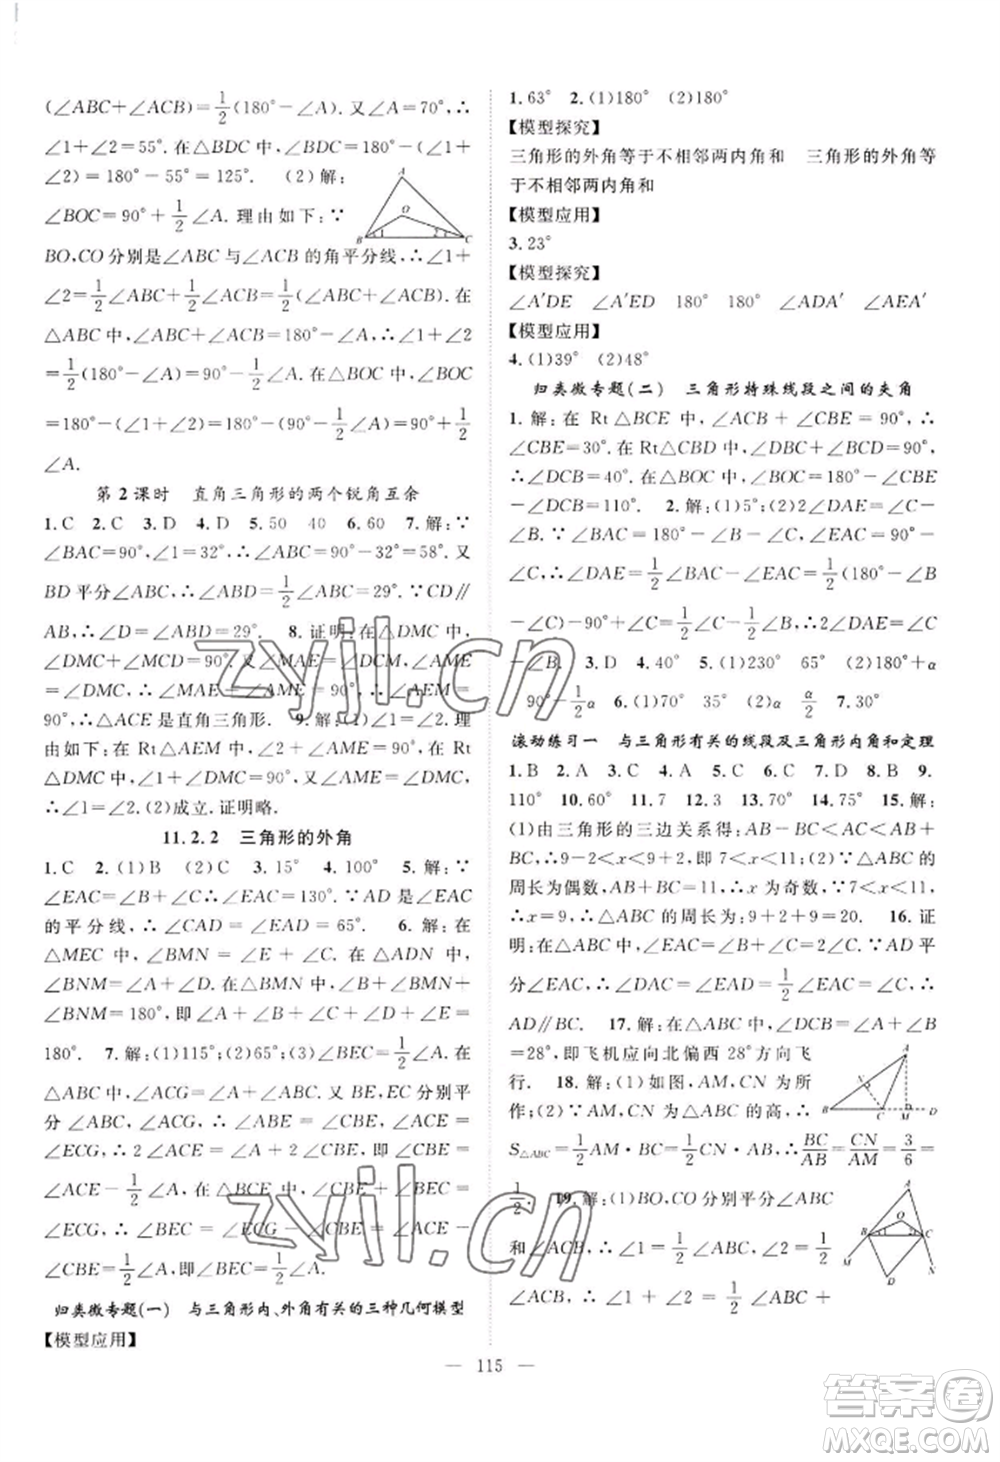 (∠ABC+∠ACB)=1/2(180°-∠A).又∠A=70°,∴
∠1+∠2=55°.在△BDC中,∠BDC=180°-(∠1+
∠2)=180°-55°=125°. (2)解:
∠BOC=90°+1/2∠A.理由如下:∵
BO,CO分别是∠ABC与∠ACB的角平分线,∴∠1+
∠2=1/2∠ABC+1/2∠ACB=1/2(∠ABC+∠ACB).在
△ABC中,∠ABC+∠ACB=180°-∠A,∴∠1+∠2=
1/2(180°-∠A)=90°-1/2∠A.在△BOC中,∠BOC=
180°-(∠1+∠2)=180°-(90°-1/2∠A)=90°+1/2
∠A.
第2课时 直角三角形的两个锐角互余
1.C 2.C 3.D 4.D 5.50 40 6.60 7.解:∵
∠BAC=90°,∠1=32°,∴∠ABC=90°-32°=58°.又
BD平分∠ABC,∴∠ABD=1/2∠ABC=29°.∵CD∥
AB,∴∠D=∠ABD=29°. 8.证明:在△DMC中,
∠DMC+∠MCD=90°.
∠DMC,∴∠MAE=∠MAE=90°,∴∠AEM=
90°,∴△ACE是直角三角形. 9.解:(1)∠1=∠2.理
由如下:在Rt△AEM中,∠2+∠AME=90°.在
Rt△DMC中,∠1+∠DMC=90°.又∠AME=∠DMC,
∴∠1=∠2.(2)成立.证明略.
11.2.2 三角形的外角
1.C 2.(1)B (2)C 3.15° 4.100° 5.解:∵
∠EAC=∠B+∠C,∴∠EAC=130°.∵AD是∠EAC
的平分线,∴∠CAD=∠EAD=65°. 6.解:在
△MEC中,∠BMN=∠E+∠C.在△ADN中,
∠BNM=∠A+∠D.在△BMN中,∠B+∠BMN+
∠BNM=180°,∴∠A+∠B+∠C+∠D+∠E=
180°. 7.解:(1)115°;(2)65°;(3)∠BEC=1/2∠A.
∵∠ACG=∠A+∠ABC.又BE,CE分别平分
∠ABC,∠ACG,∴∠CBE=1/2∠ABC,∠ACE=
∠ECG=1/2∠ACG.∴2∠ACE=∠A+2∠CBE,∴
∠ACE-1/2∠A=∠CBE,∵∠CBE+∠BEC=
∠ECG,∴∠BEC=∠ECG-∠CBE=∠ACE-
∠CBE=1/2∠A,即∠BEC=1/2∠A.
归类微专题(一) 与三角形内、外角有关的三种几何模型
【模型应用】
1.63° 2.(1)180° (2)180°
【模型探究】
三角形的外角等于不相邻两内角和 三角形的外角等
于不相邻两内角和
【模型应用】
3.23°
【模型探究】
∠A′DE ∠A′ED 180° 180° ∠ADA′ ∠AEA′
【模型应用】
4.(1)39° (2)48°
归类微专题(二) 三角形特殊线段之间的夹角
1.解:在Rt△BCE中,∠ACB+∠CBE=90°,∴
∠CBE=30°.在Rt△CBD中,∠DBC+∠DCB=90°,
∴∠DCB=40°. 2.解:(1)5°;(2)∵∠DAE=90°-
∠B.又∠BAC=180°-∠B-∠C,∠BAE=90°-
∠C,∴∠DAE=1/2∠BAC-∠BAE=1/2(180°-∠B
-∠C)-90°+∠C=1/2∠C-1/2∠B,∴2∠DAE=∠C
-∠B. 3.D 4.40° 5.(1)230° 65° (2)180°+α
90°-1/2α 6.(1)70° 35° (2)α α/2 7.30°
滚动练习一 与三角形有关的线段及三角形内角和定理
1.B 2.A 3.C 4.A 5.C 6.C 7.D 8.B 9.
110° 10.60° 11.7 12.3 13.70° 14.75° 15.解:
(1)由三角形的三边关系得:AB-BC<AC<AB+
BC,∴9-2<x<9+2,即7<x<11;(2)∵△ABC的
周长为偶数,AB+BC=11,∴x为奇数,∵7<x<11,
∴x=9.∴△ABC的周长为:9+2+9=20. 16.证
明:在△ABC中,∠EAC=∠B+∠C=2∠C.∵AD平
分∠EAC,∴∠DAC=∠EAD=1/2∠EAC=∠C,∴
AD∥BC. 17.解:在△ABC中,∠DCB=∠A+∠B
=28°,即飞机应向北偏西28°方向飞
行. 18.解:(1)如图,AM,CN为所
作;(2)∵AM,CN为△ABC的高,∴
S△ABC=1/2AM·BC=1/2CN·AB,∴BC/AB=CN/AM=3/6=
1/2. 19.解:(1)BO,CO分别平分∠ABC
和∠ACB,∴∠1=1/2∠ABC,∠2=1/2
∠ACB,∴∠1+∠2=1/2∠ABC+
— 115 —
zyjl.cn
zyjl.cn
答案圈
MXQE.COM